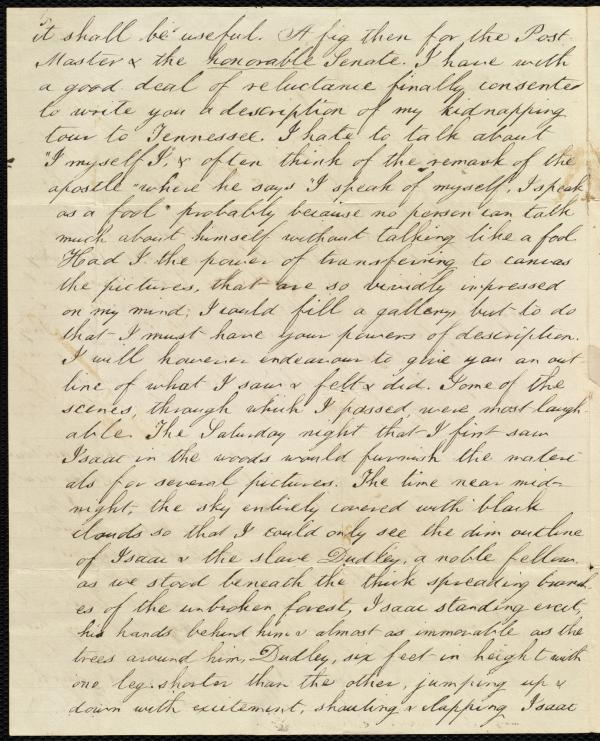 it shall be useful. A fig then for the Post
Master & the honorable Senate. I have with
a good deal of reluctance finally consented
to write you a description of my kidnapping
tour to Tennessee. I hate to talk about
"I myself I", & often think of the remark of the
apostle "where he says "I speak of myself, I speak
as a fool" probably because no person can talk
much about himself without talking like a fool.
Had I the power of transferring to canvas
the pictures, that are so vividly impressed
on my mind; I could fill a gallery, but to do
that I must have your powers of description.
I will however endeavour to give you an out
line of what I saw & felt & did. Some of the
scenes, through which I passed, were most laugh-
able. The Saturday night that I first saw
Isaac in the woods would furnish the materi
als for several pictures. The time near mid-
night, the sky entirely covered with black
clouds so that I could only see the dim outline
of Isaac & the slave Dudley, a noble fellow,
as we stood beneath the thick spreading branch-
es of the unbroken forest, Isaac standing erect,
his hands behind him & almost as immovable as the
trees around him, Dudley, six feet in height with
one leg shorter than the other, jumping up &
down with excitement, shouting & clapping Isaac